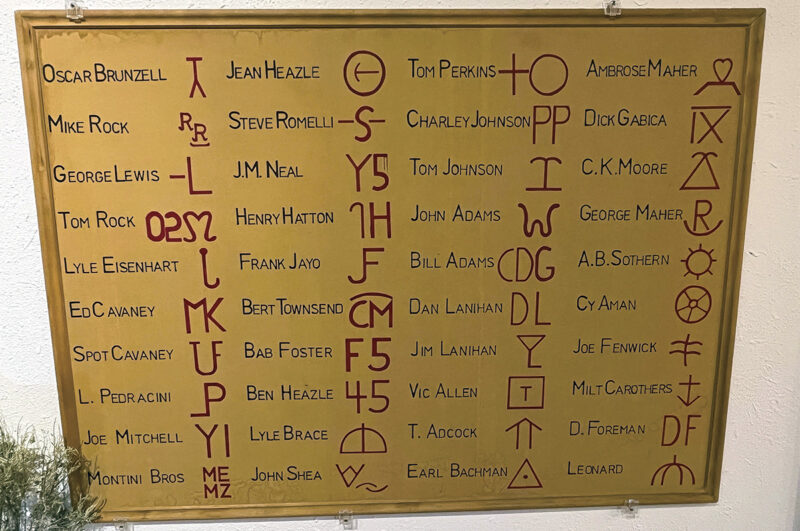 OSCAR BRUNZELL
JEAN HEAZLE
TOM PERKINS
AMBROSE MAHER
MIKE ROCK RR
STEVE ROMELLI -S-
CHARLEY JOHNSON PP
DICK GABICA IX
GEORGE LEWIS -L
J.M. NEAL Y5
TOM JOHNSON I
C.K. MOORE
TOM ROCK
HENRY HATTON 7H
JOHN ADAMS W
GEORGE MAHER R
LYLE EISENHART
FRANK JAYO JF
BILL ADAMS CDG
A.B. SOTHERN
ED CAVANEY MK
BERT TOWNSEND CM
DAN LANIHAN DL
CY AMAN
SPOT CAVANEY UF
BAB FOSTER F5
JIM LANIHAN Y
JOE FENWICK
L. PEDRACINI P
BEN HEAZLE 45
VIC ALLEN T
MILT CAROTHERS
JOE MITCHELL YI
LYLE BRACE
T. ADCOCK
D. FOREMAN DF
MONTINI BROS ME
MZ
JOHN SHEA W
EARL BACHMAN
LEONARD